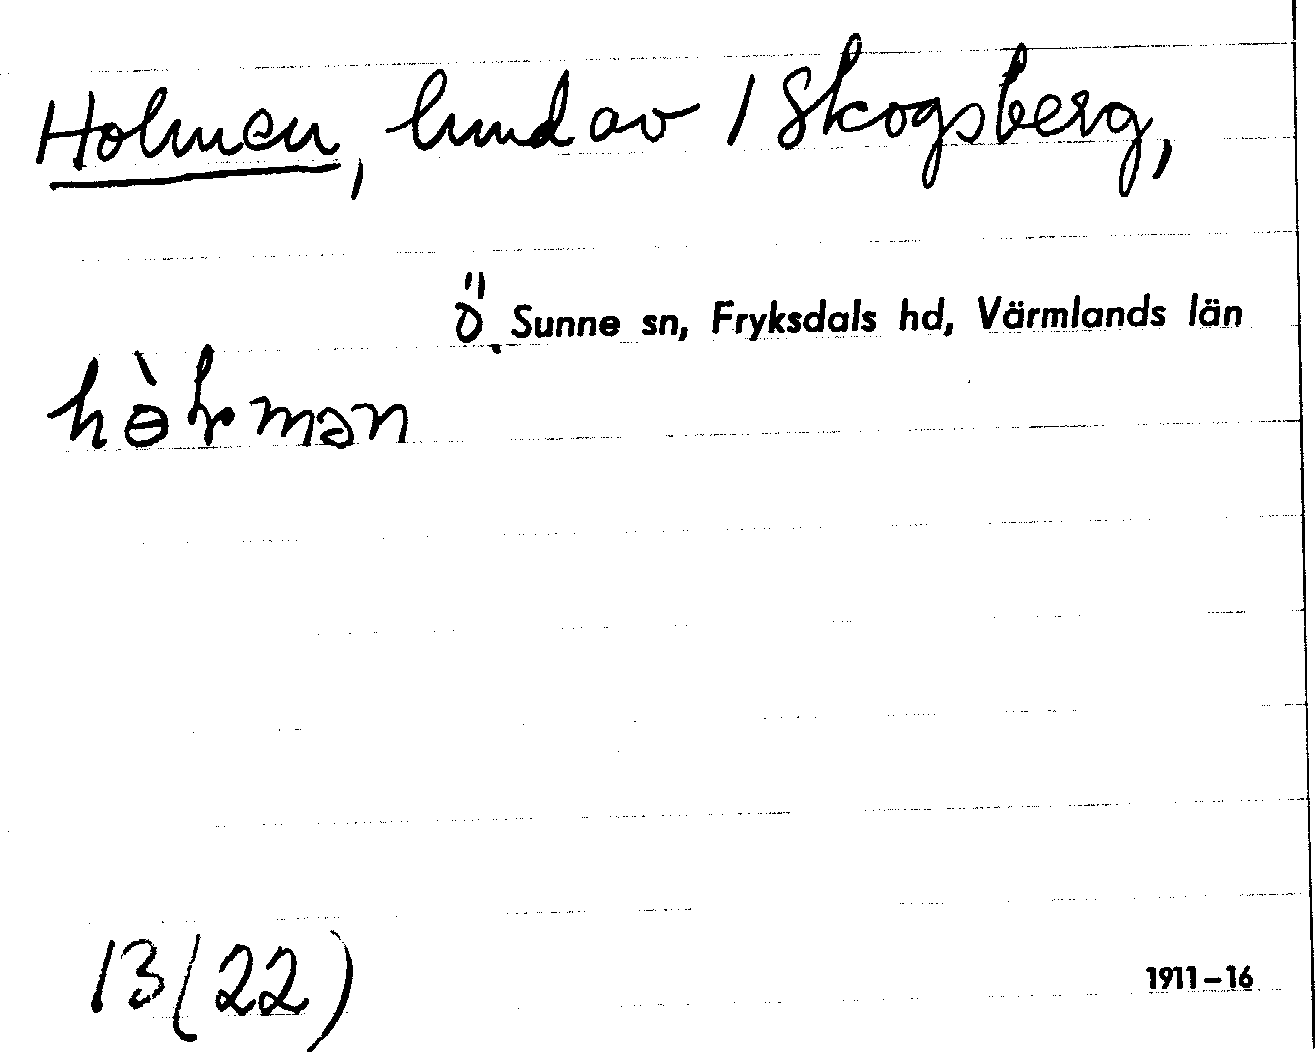 Holmen, lund av 1 Skogsberg,
Ö. Sunne sn, Fryksdals hd, Värmlands län
hɵ̀ɽmən
13 (22)
1911–16